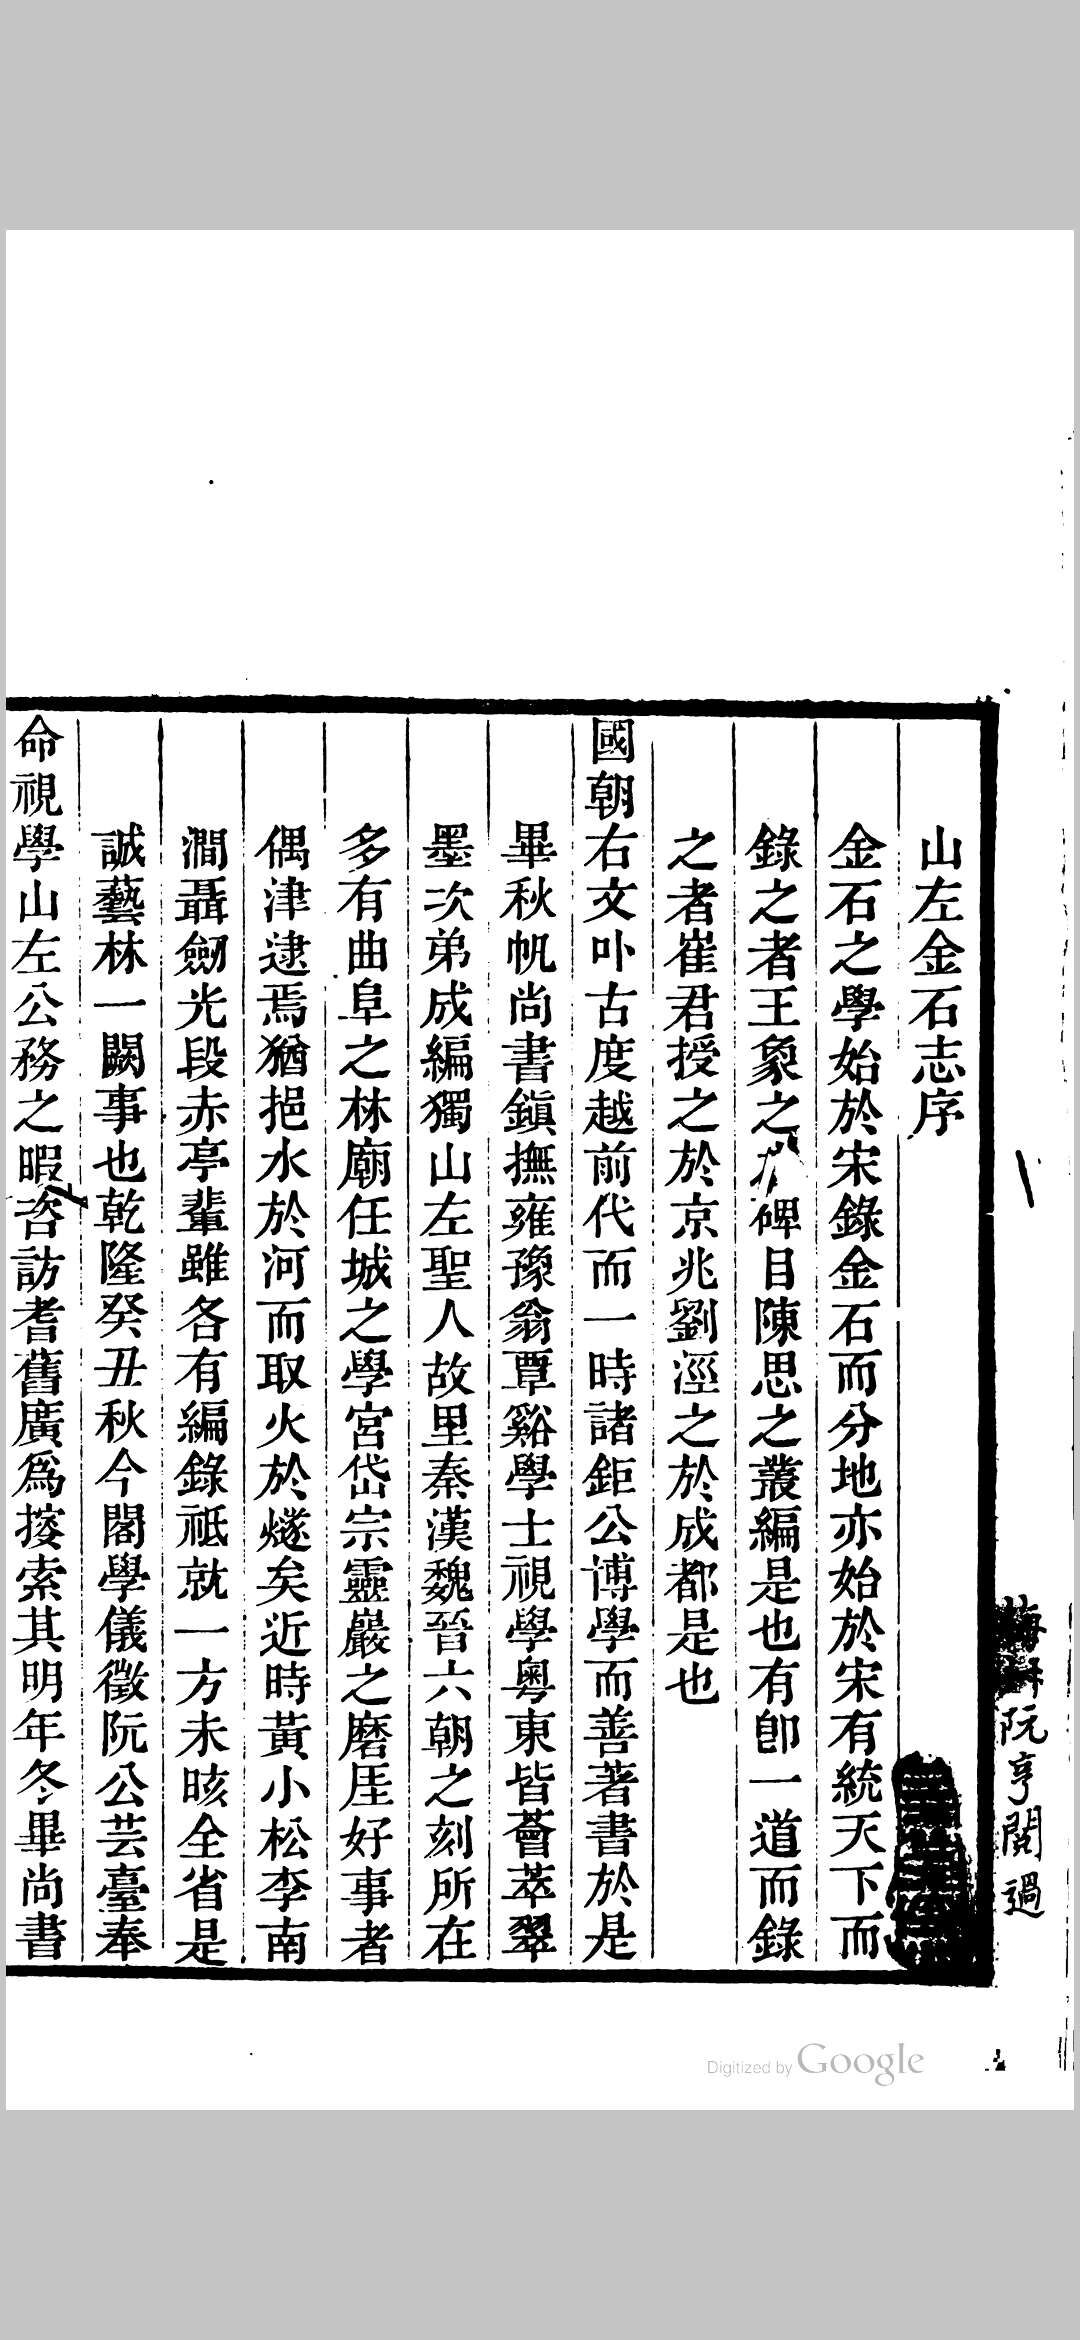 阮亨閱過
山左金石志序
金石之學始於宋錄金石而分地亦始於宋有統天下而
錄之者王象之碑目陳思之叢編是也有卽一道而錄
之者崔君授之於京兆劉涇之於成都是也
國朝右文卟古度越前代而一時諸鉅公博學而善著書於是
畢秋帆尚書鎭撫雍豫翁覃谿學士視學粵東皆薈萃翠
墨次弟成編獨山左聖人故里秦漢魏晉六朝之刻所在
多有曲阜之林廟任城之學宮岱宗靈巖之磨厓好事者
偶津逮焉猶挹水於河而取火於燧矣近時黃小松李南
澗聶劍光段赤亭輩雖各有編錄祗就一方未晐全省是
誠藝林一闕事也乾隆癸丑秋今閣學儀徵阮公芸臺奉
命視學山左公務之暇咨訪耆舊廣爲搜索其明年冬畢尚書
Digitized by Google